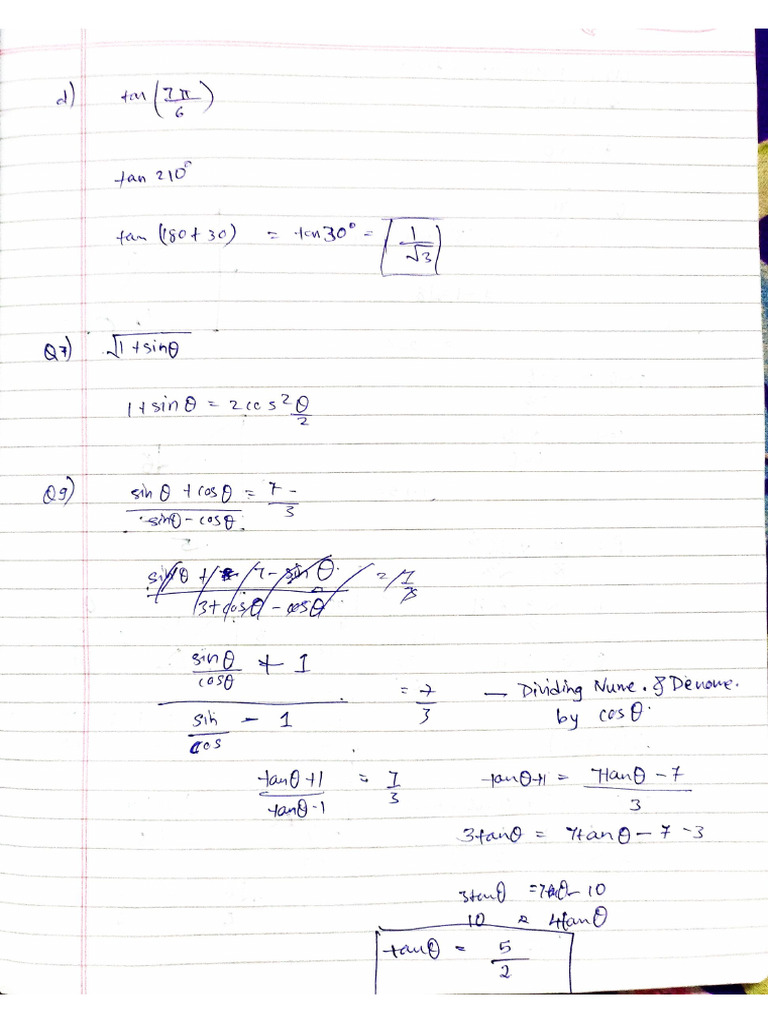 d) tan(7π/6)
tan 210°
tan (180+30) = tan30° = 1/√3
Q7) √1+sinθ
1+sinθ = 2cos²θ/2
Q9) sinθ + cosθ / sinθ - cosθ = 7/3
sinθ/cosθ + 1 / sin/cos - 1 = 7/3 — Dividing Nume. & Denome.
by cosθ.
tanθ+1 / tanθ-1 = 7/3 tanθ+1 = 7tanθ-7 / 3
3tanθ = 7tanθ - 7 - 3
3tanθ = 7tanθ - 10
10 = 4tanθ
tanθ = 5/2